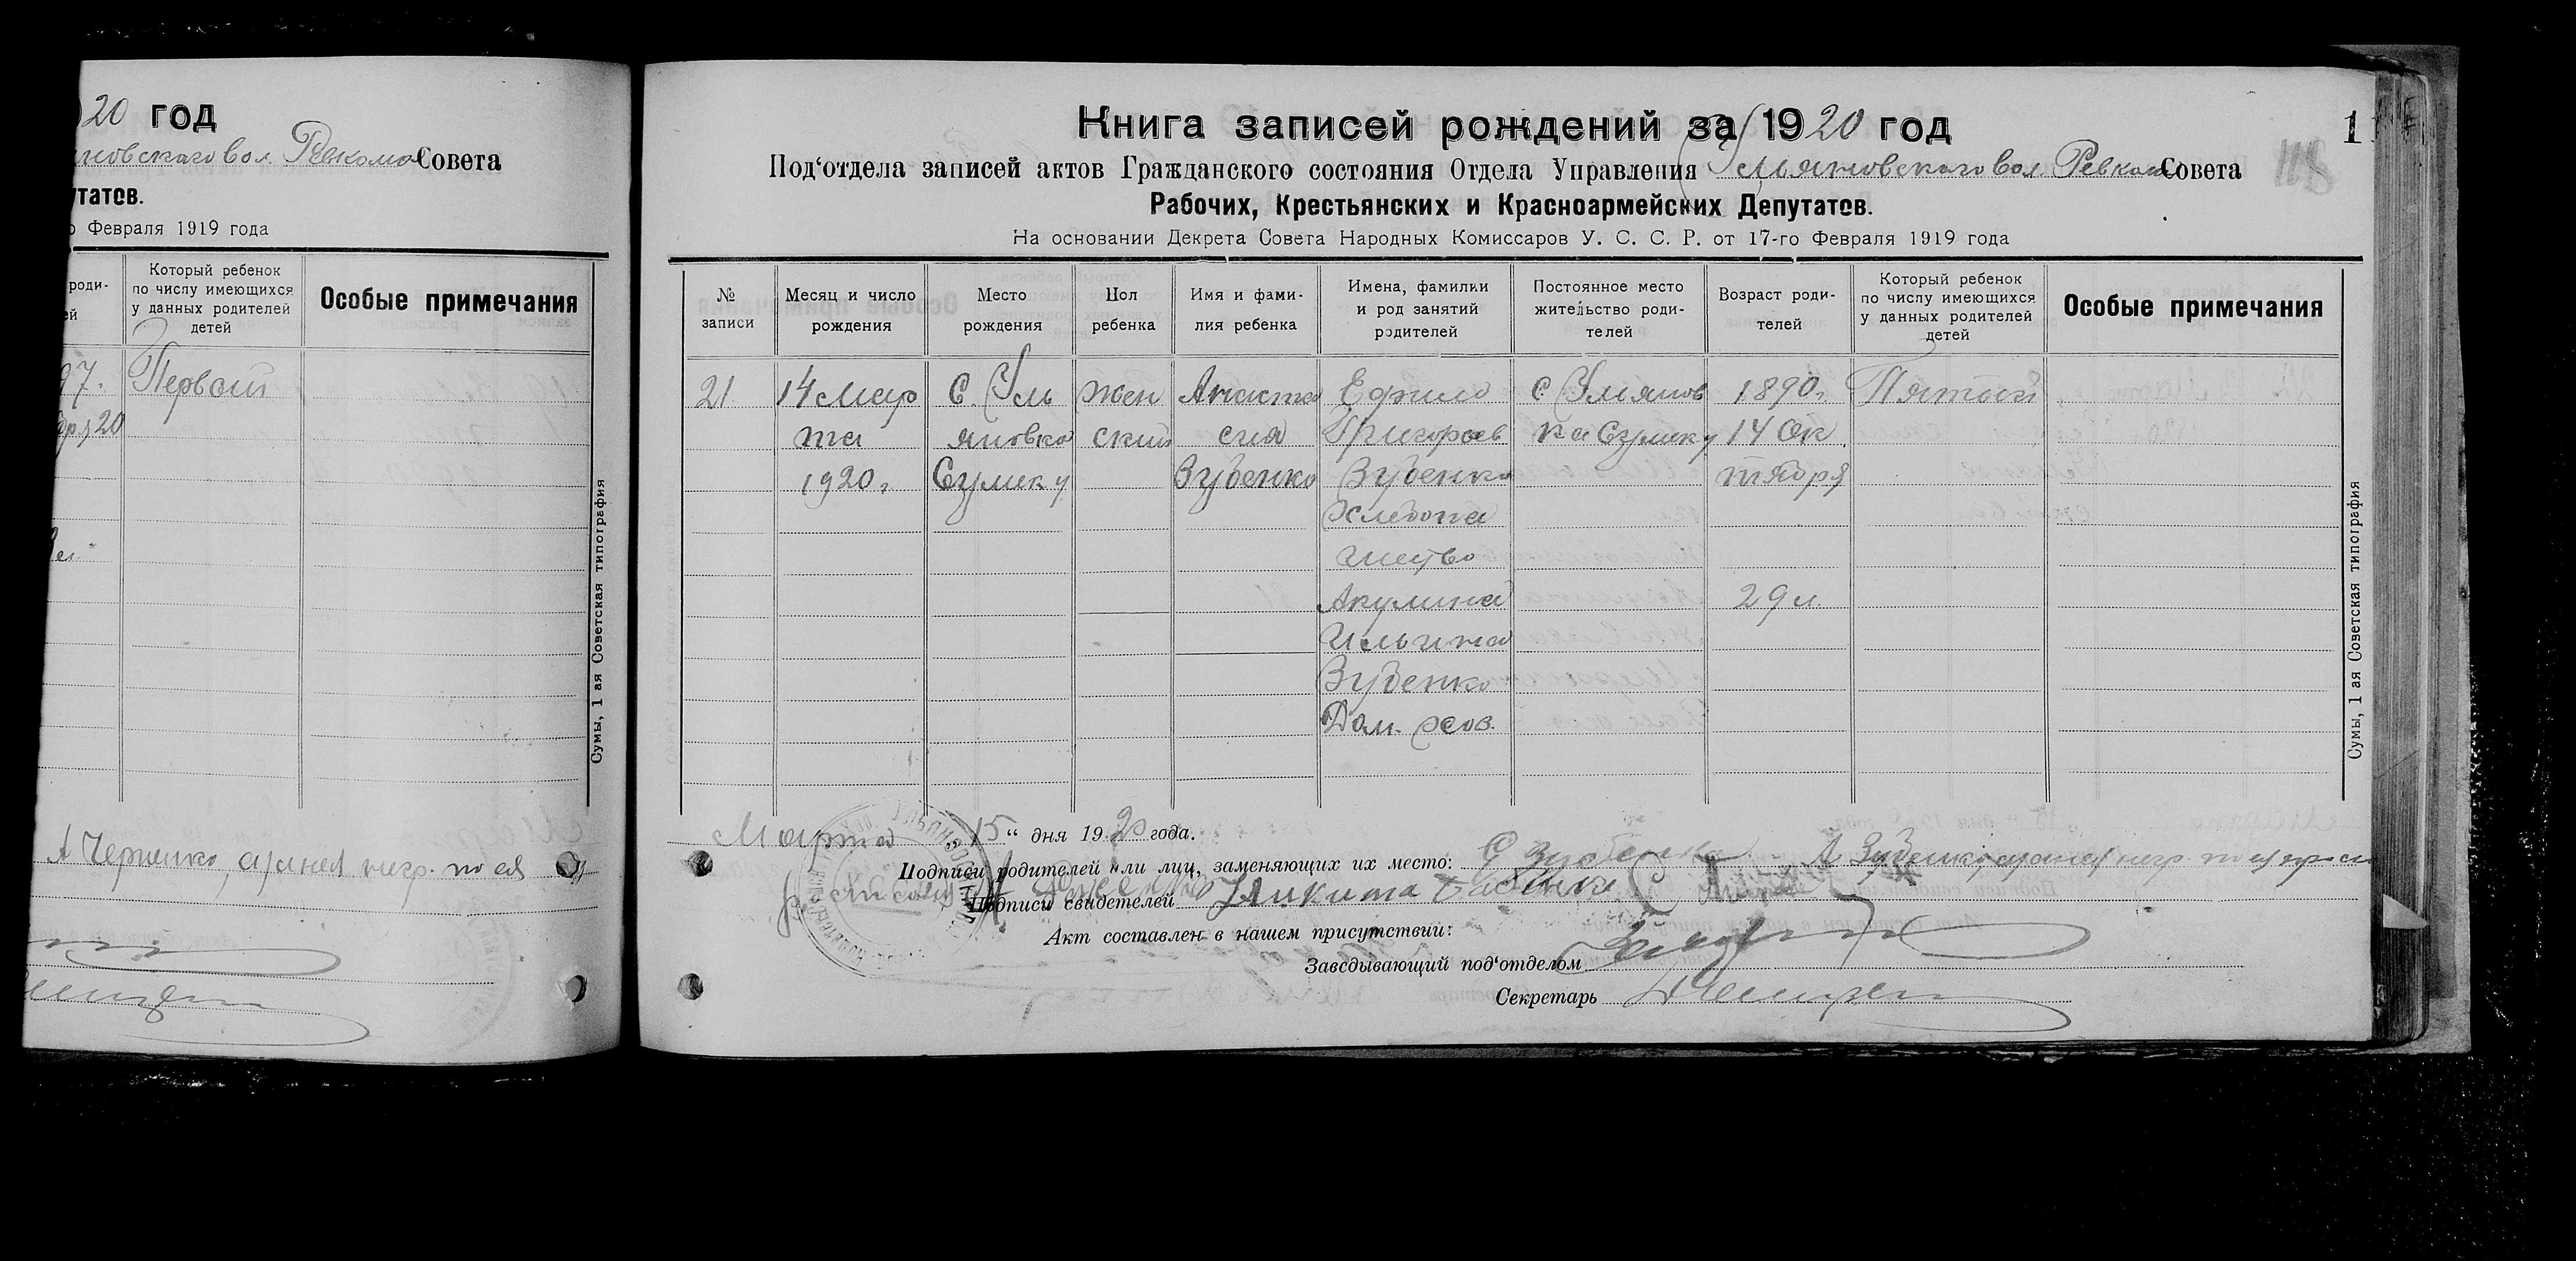 20 год
яновскаго вол. Ревкома Совета
утатов.
о Февраля 1919 года
роди-
ей
Который ребенок
по числу имеющихся
у данных родителей
детей
Особые примечания
97.
Первый
20
Сумы, 1 ая Советская типография
А Черненко,
Книга записей рождений за 1920 год
1
Под‘отдела записей актов Гражданского состояния Отдела Управления Ульяновскаго вол. Ревкома Совета
118
Рабочих, Крестьянских и Красноармейских Депутатов.
На основании Декрета Совета Народных Комиссаров У. С. С. Р. от 17-го Февраля 1919 года
№
записи
Месяц и число
рождения
Место
рождения
Пол
ребенка
Имя и фами-
лия ребенка
Имена, фамилии
и род занятий
родителей
Постоянное место
жительство роди-
телей
Возраст роди-
телей
Который ребенок
по числу имеющихся
у данных родителей
детей
Особые примечания
21
14 мар
та
1920 г
С. Уль
яновка
Сумск у
жен
ский
Анаста
сия
Зубенко
Ефим
Григорьев
Зубенко
Хлебопа
шество
Акулина
Ильина
Зубенко
Дом. хоз.
с Ульянов
ка Сумск у
1890 г
14 Ок
тября
29 л.
Пятый
Сумы, 1 ая Советская типография
Марта „15“ дня 1920 года.
Подписи родителей или лиц, заменяющих их место: Зубенко А Зубенко
Подписи свидетелей Никита
Акт составлен в нашем присутствии:
Заведывающий под‘отделом
Секретарь